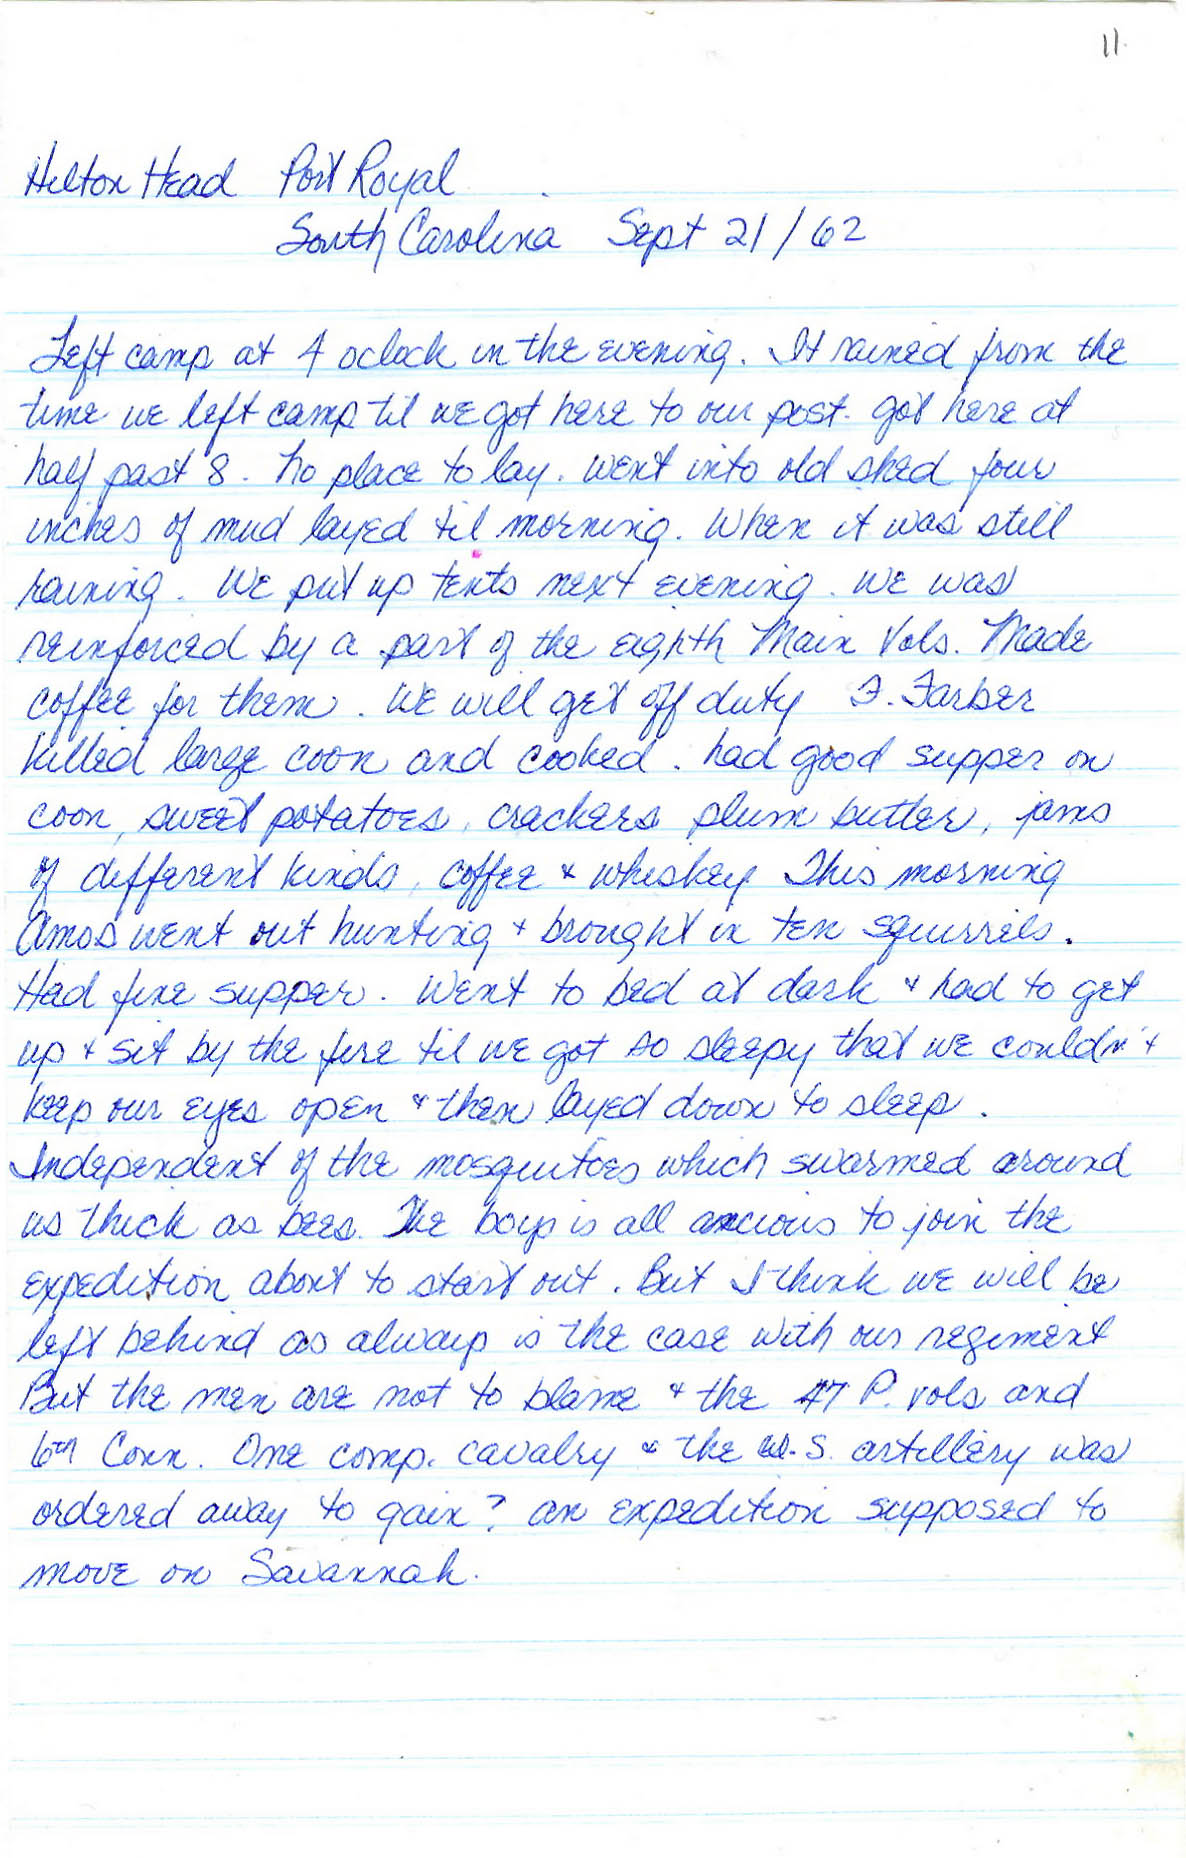 11.
Hilton Head Port Royal
South Carolina Sept 21/62
Left camp at 4 oclock in the evening. It rained from the
time we left camp til we got here to our post. got here at
half past 8. No place to lay. Went into old shed four
inches of mud layed til morning. When it was still
raining. We put up tents next evening. We was
reinforced by a part of the eighth Main Vols. Made
coffee for them. We will get off duty F. Farber
killed large coon and cooked. had good supper on
coon, sweet potatoes, crackers plum butter, jams
of different kinds, coffee & whiskey This morning
Amos went out hunting & brought in ten squirrels.
Had fine supper. Went to bed at dark & had to get
up & sit by the fire til we got so sleepy that we couldn't
keep our eyes open & then layed down to sleep.
Independent of the mosquitoes which swarmed around
us thick as bees. The boys is all anxious to join the
expedition about to start out. But I think we will be
left behind as always is the case with our regiment
But the men are not to blame & the 47 P. vols and
6th Conn. One comp. cavalry & the U.S. artillery was
ordered away to gain? an expedition supposed to
move on Savannah.